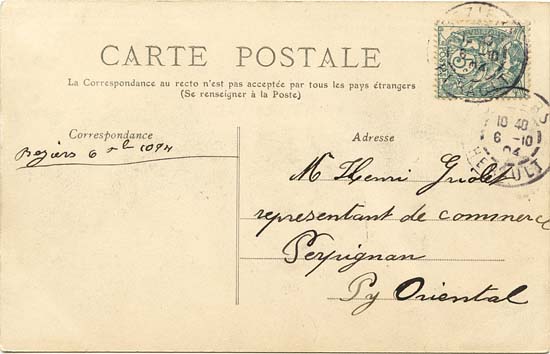 CARTE POSTALE
La Correspondance au recto n'est pas acceptée par tous les pays étrangers
(Se renseigner à la Poste)
Correspondance
Beziers 6
Adresse
M Henri
representant de commerce
Perpignan
Py Oriental
10 40
6 -10
04
HERAULT